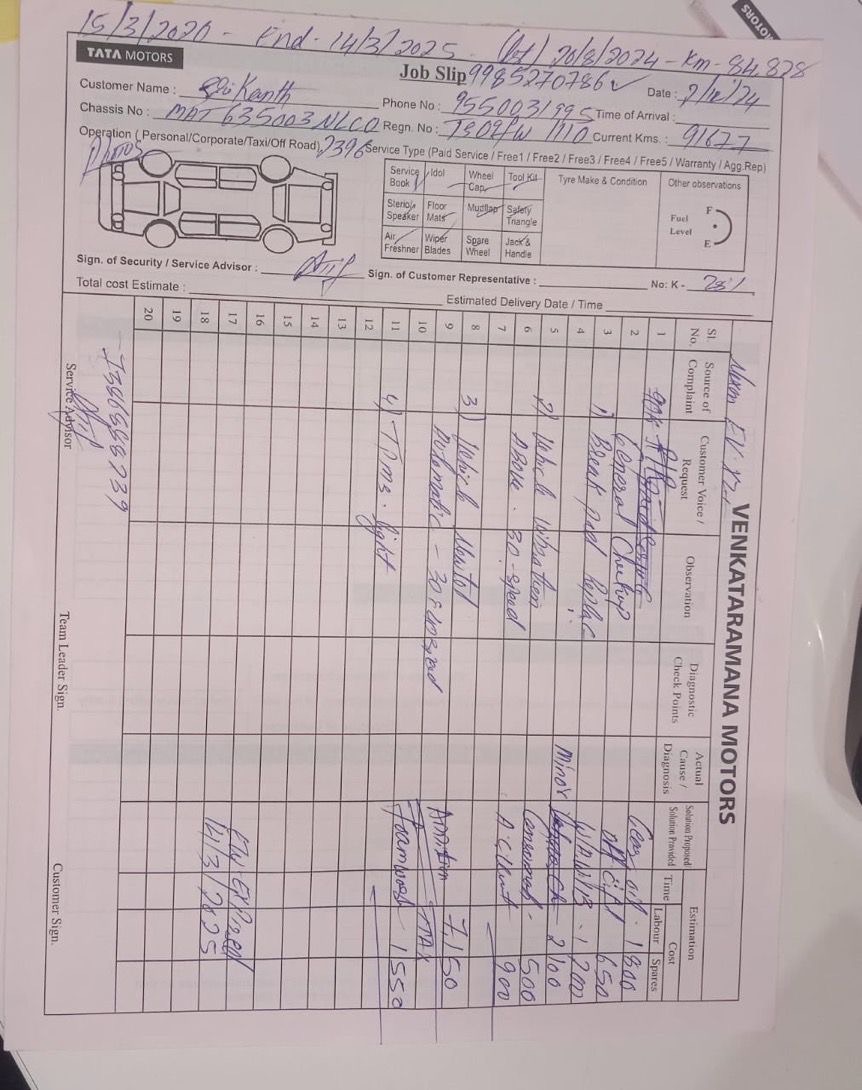 MOTORS
15/3/2020 - End - 14/3/2025 - 20/8/2024 - Km - 84,828
TATA MOTORS
Job Slip 9985270786
Date : 9/12/24
Customer Name : Sri Kanth
Phone No : 9550031995 Time of Arrival :
Chassis No : MAT 635003NLCO
Regn. No : Current Kms. : 91677
Operation ( Personal/Corporate/Taxi/Off Road) 2396 Service Type (Paid Service / Free1 / Free2 / Free3 / Free4 / Free5 / Warranty / Agg.Rep)
Photos
Service Book Idol Wheel Cap Tool Kit Tyre Make & Condition Other observations
Sterio/e Speaker Floor Mats Mudflap Safety Triangle Fuel Level F E
Air Freshner Wiper Blades Spare Wheel Jack & Handle
Sign. of Security / Service Advisor :
Sign. of Customer Representative :
No: K -
Total cost Estimate :
Estimated Delivery Date / Time
VENKATARAMANA MOTORS
Nexon EV
Sl. No. Source of Complaint Customer Voice / Request Observation Diagnostic Check Points Actual Cause / Diagnosis Solution Proposed/ Solution Provided Time Estimation Cost Labour Spares
1
2 General Checkup Gear oil - 1800
3 1) Break pad Replac 650
4 W/A W/B - 1200
5 2) Vehicle Vibration Minor 2100
6 Above - 30 - speed 500
7 A.C 900
8 3) Vehicle Newtol
9 Automatic - 30 7,150
10 TAX
11 4) TPMS - light Foamwash - 1550
12
13
14
15
16
17 EW EXPIRED
18 14/3/2025
19
20
Service Advisor
Team Leader Sign.
Customer Sign.